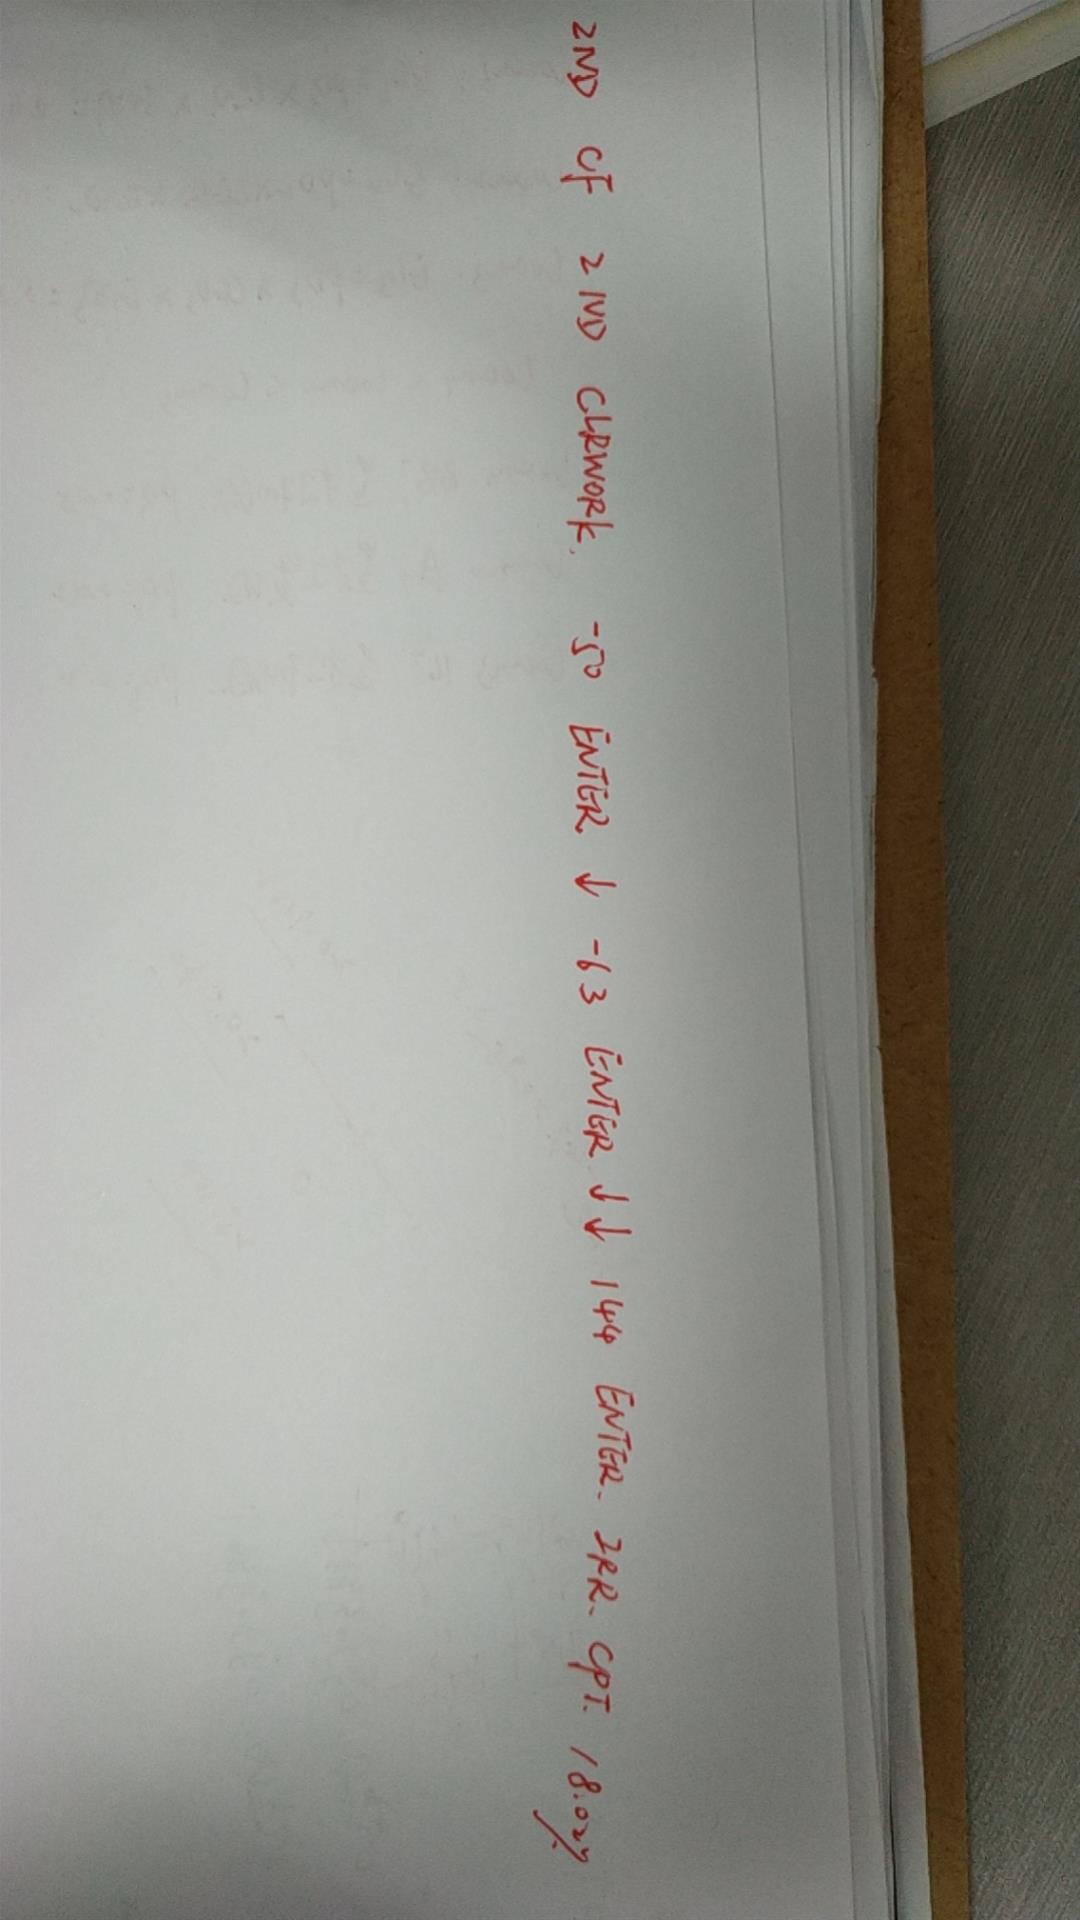 2ND CF 2ND CLRWORK. -50 ENTER ↓ -63 ENTER ↓↓ 144 ENTER. IRR. CPT. 18.02%